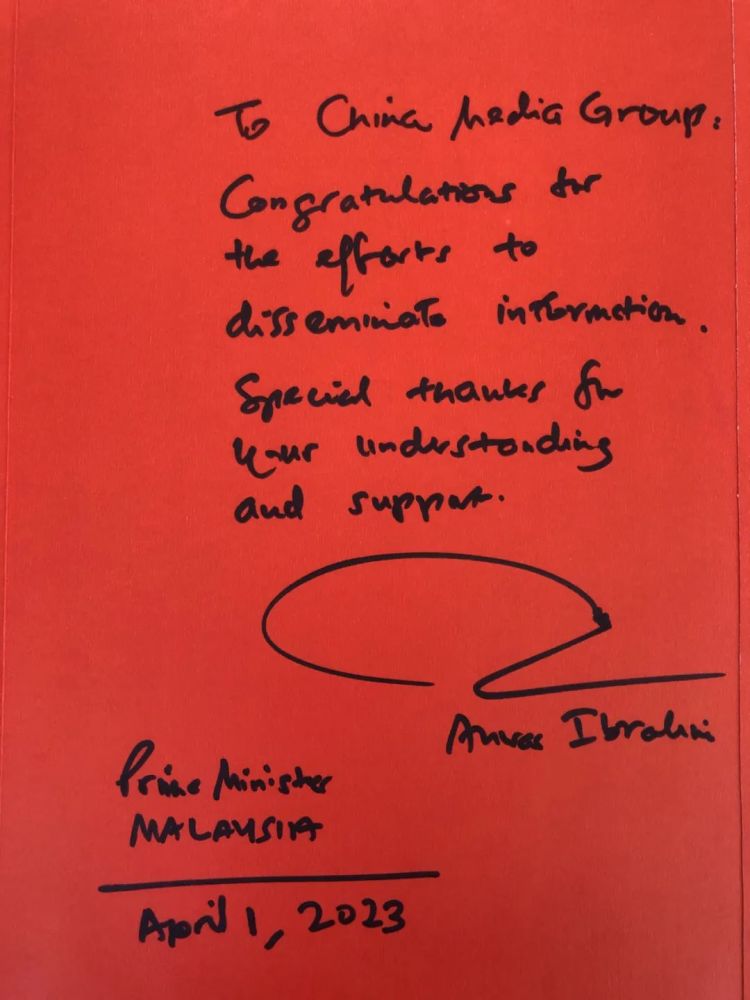 To China Media Group:
Congratulations for
the efforts to
disseminate information.
Special thanks for
your understanding
and support.
Anwar Ibrahim
Prime Minister
MALAYSIA
April 1, 2023